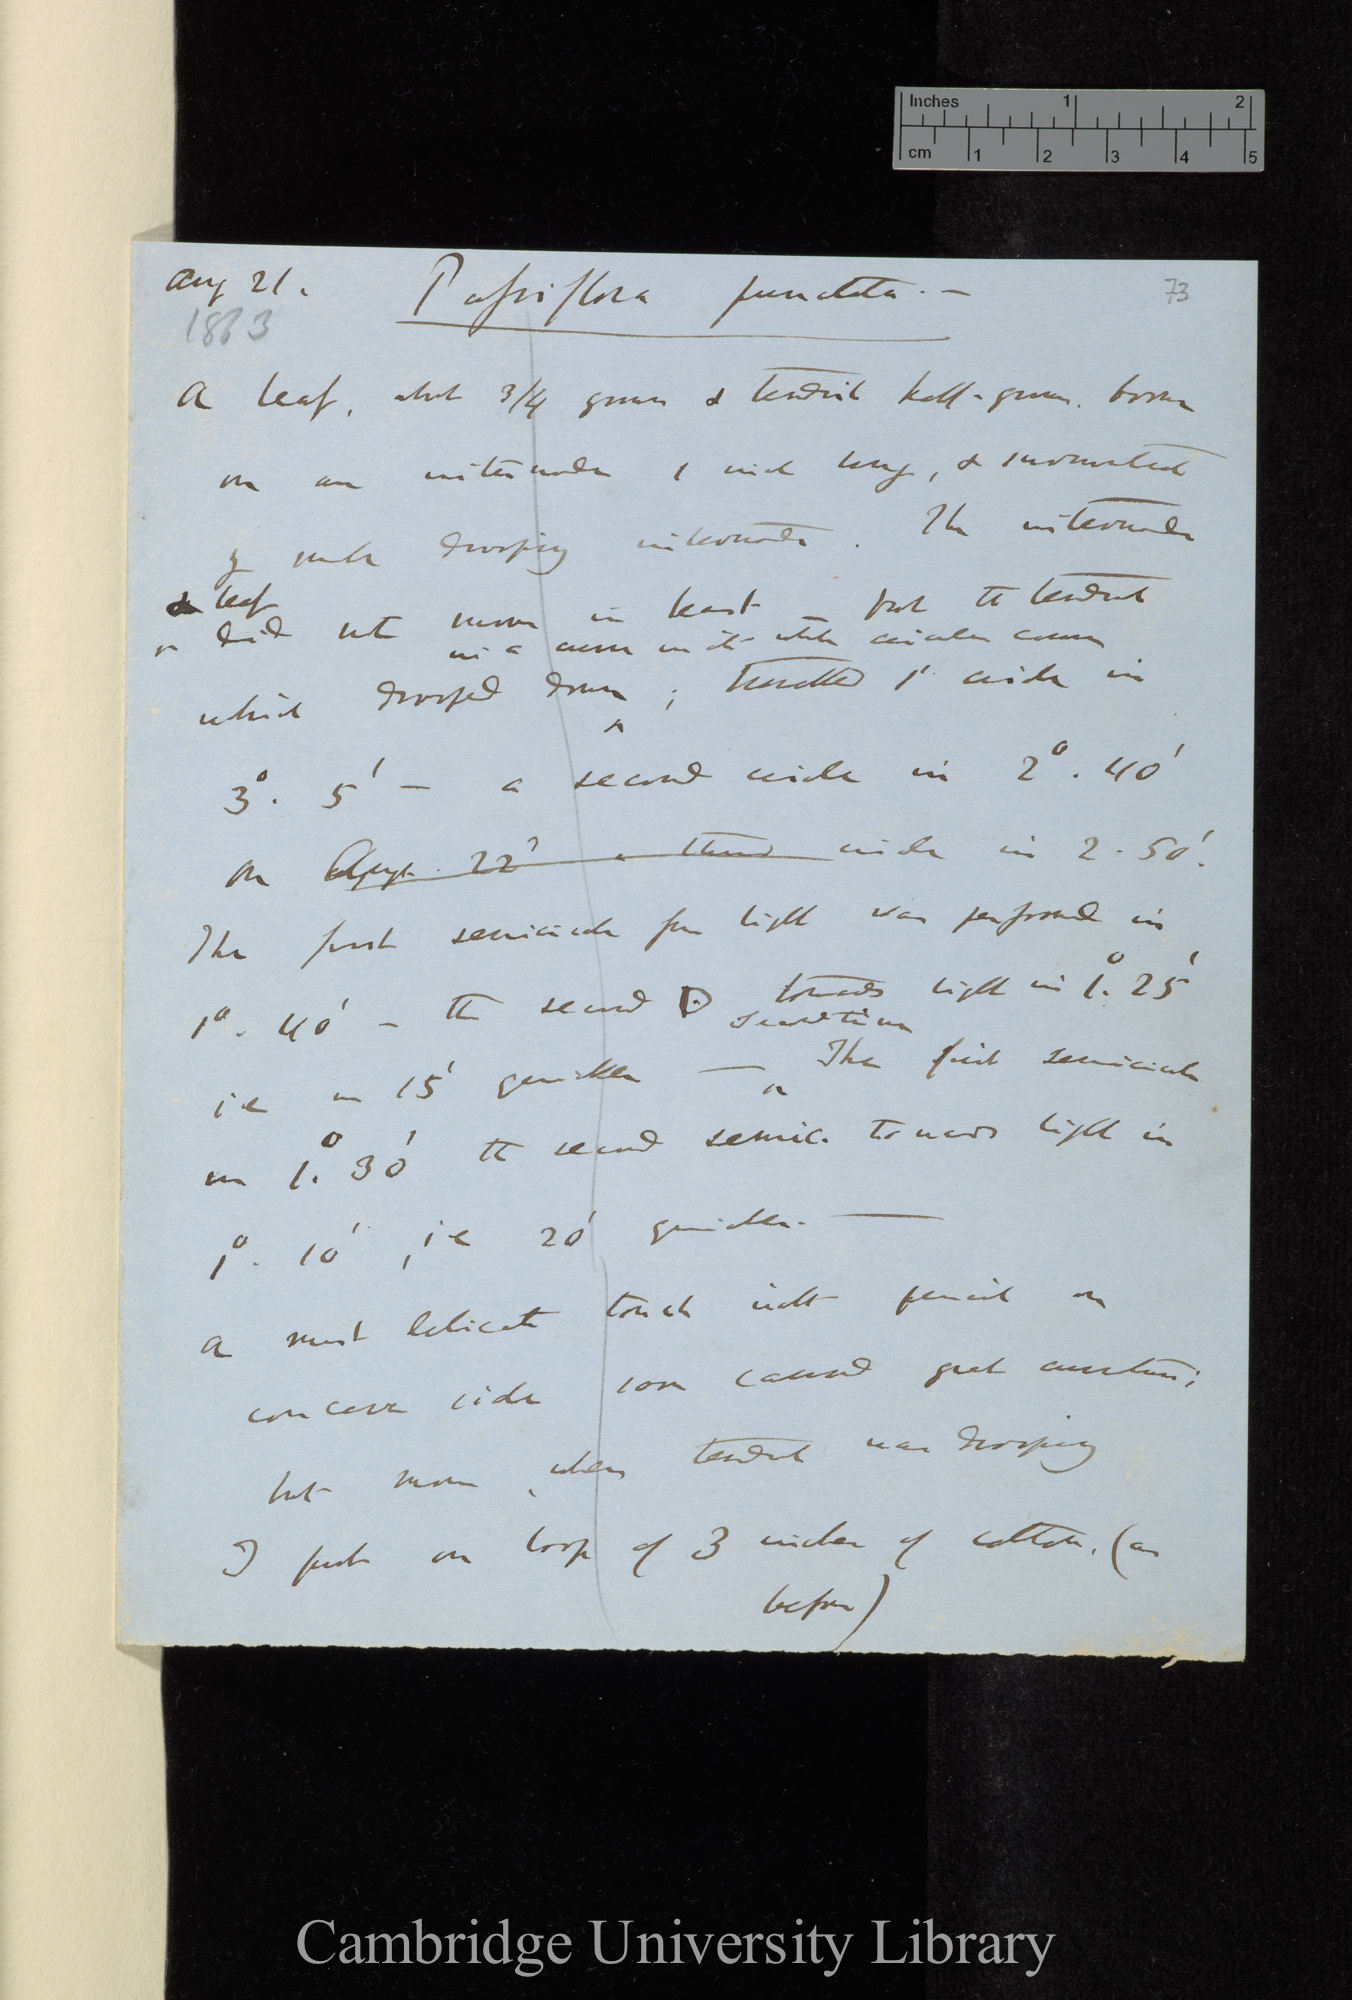 Inches 1 2
cm 1 2 3 4 5
Aug 21. Passiflora punctata. —
73
1863
A leaf, about 3/4 grown & tendril half-grown, borne
on an internode 1 inch long, & surmounted
by much drooping internode. The internode
& leaf
did not move in least — but the tendril
in a circular course
which drooped down; travelled 1' circle in
3°. 5' — a second circle in 2°. 40'
on Augt. 22' a third circle in 2. 50'.
The first semicircle from light was performed in
1°. 40' — the second D towards light in 1°. 25'
second time
ie in 15' quicker — The first semicircle
in 1°. 30' the second semic. towards light in
1°. 10', ie 20' quicker. —
A most delicate touch with pencil on
concave side soon caused great curvature;
but now, when tendril was drooping
I put on loop of 3 inches of cotton. (as
before)
Cambridge University Library